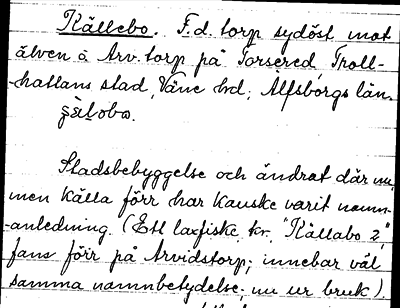 Källebo. F.d. torp sydöst mot
älven å Arv. torp på Torsered, Troll-
hättans stad, Väne hd, Älfsborgs län.
Stadsbebyggelse och ändrat där nu,
men källa förr har kanske varit namn-
anledning. (Ett laxfiske, kr. "Källabo 2,"
fans förr på Arvidstorp, innebar väl
samma namnbetydelse - nu ur bruk)